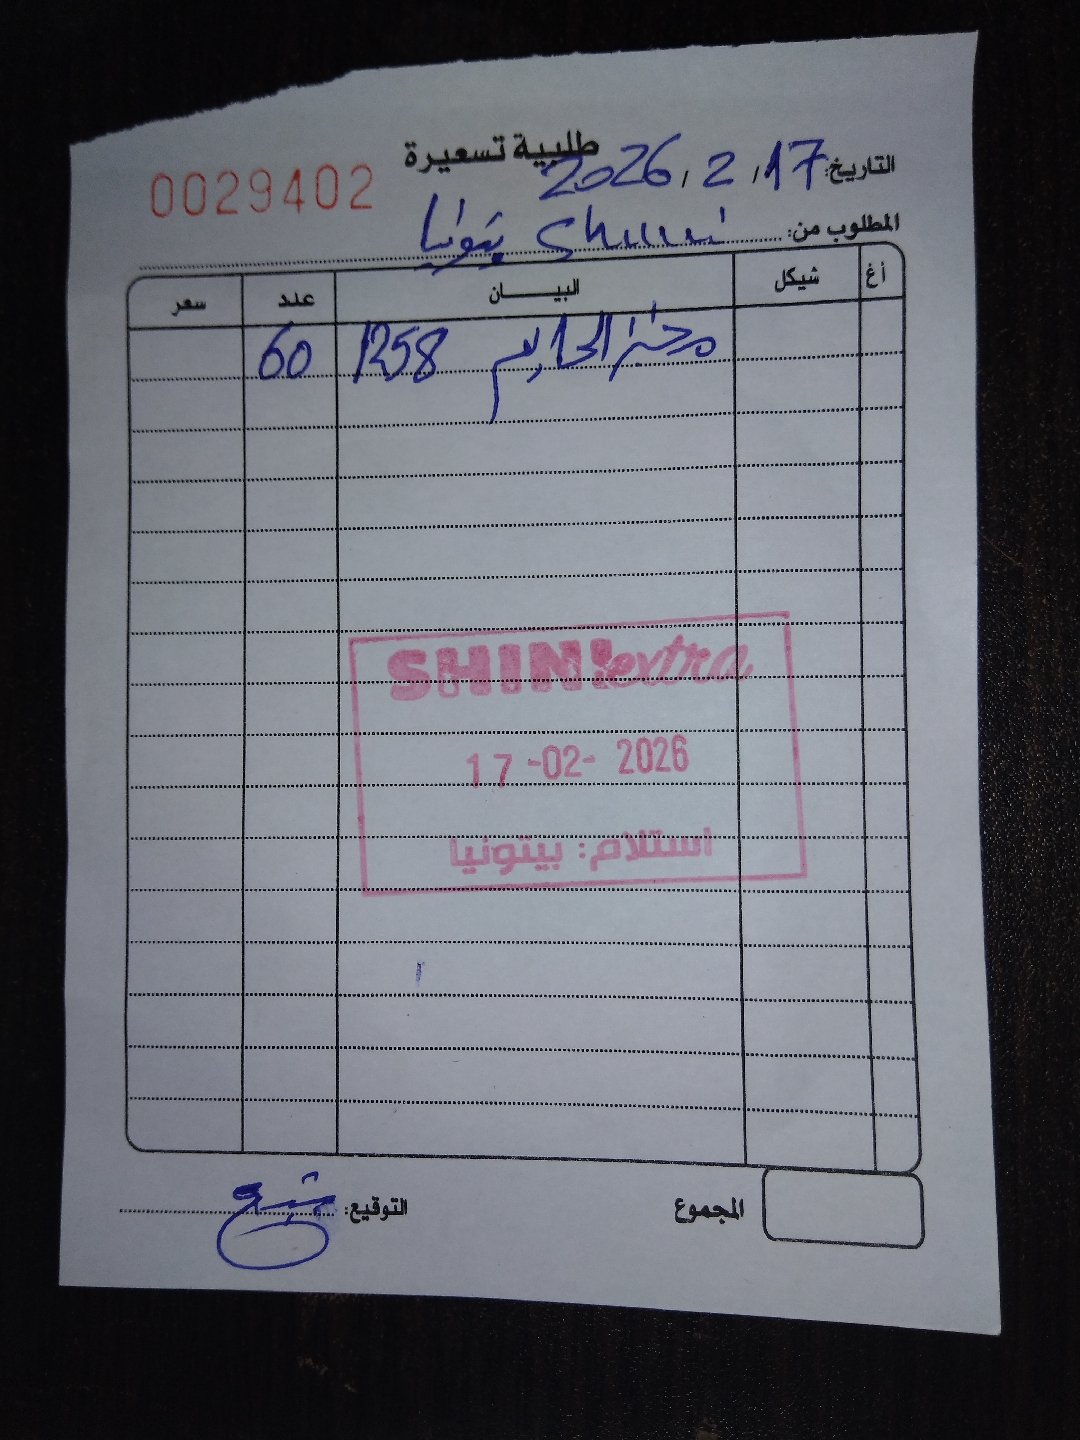 طلبية تسعيرة
0029402
التاريخ: 17 / 2 / 2026
المطلوب من: Shini بيتونيا
أغ شيكل البيـــــان عدد سعر
1258 60
SHINI extra
17-02-2026
استلام: بيتونيا
المجموع التوقيع: